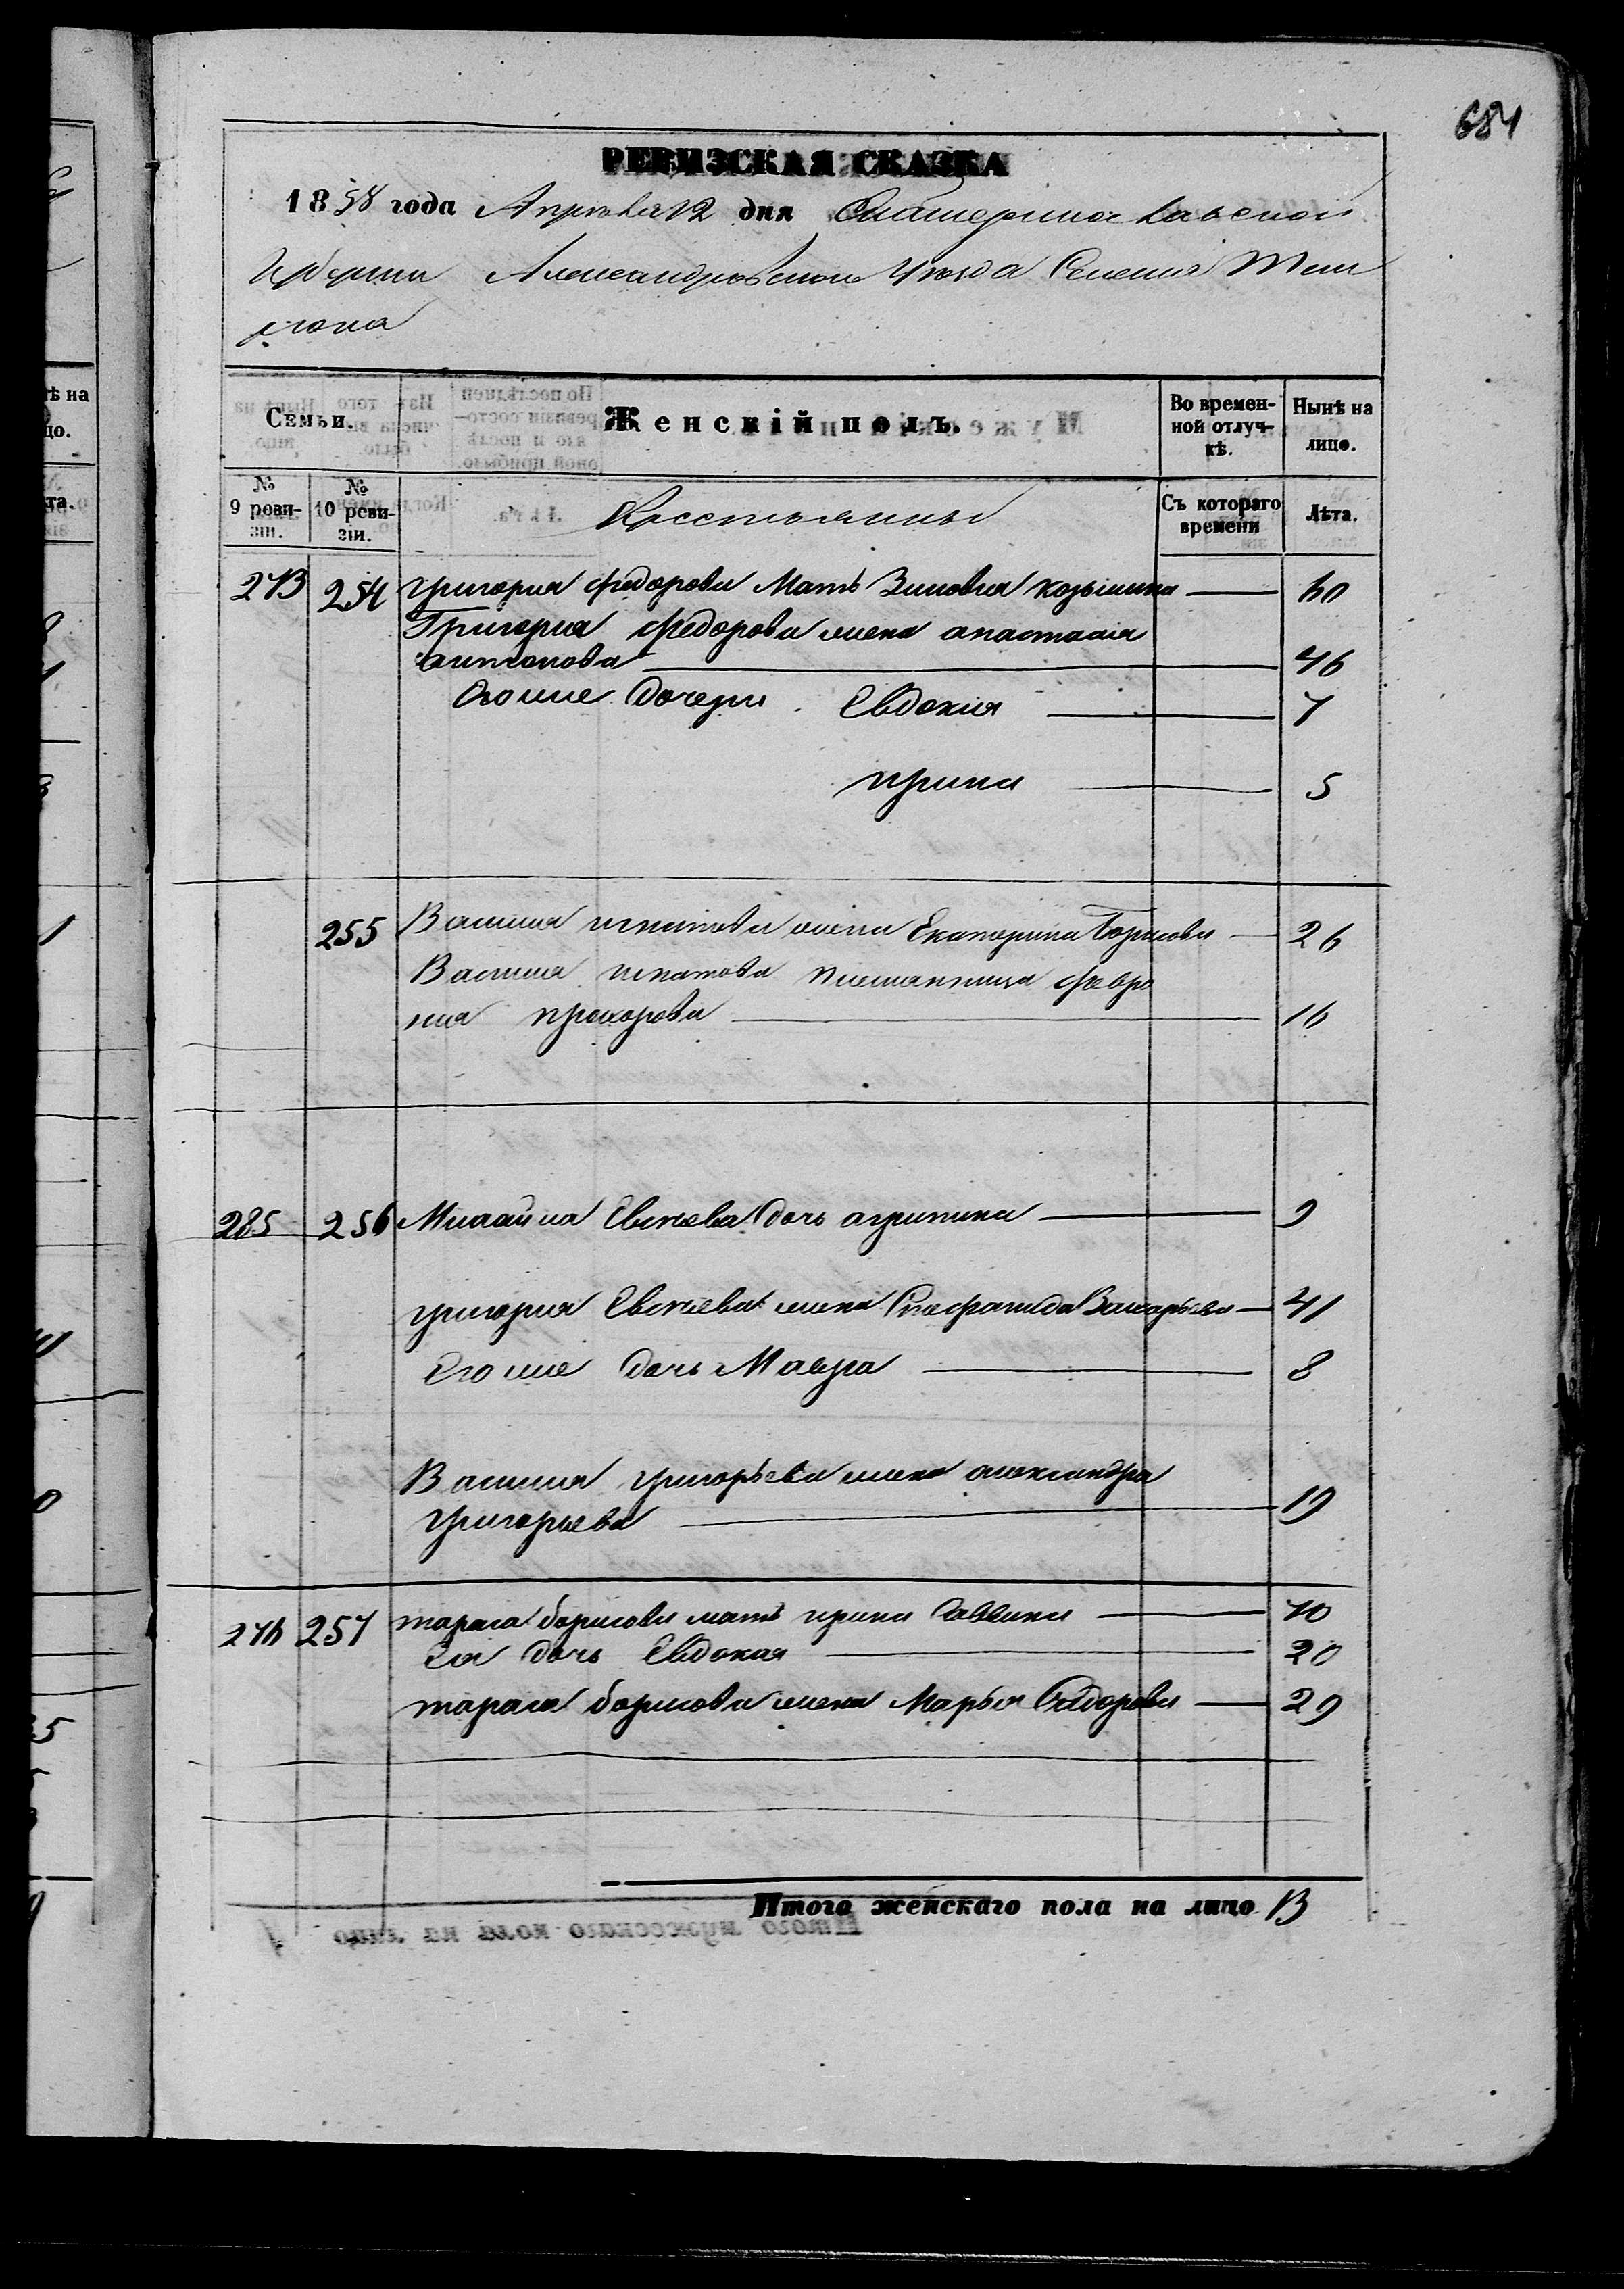 684
РЕВИЗСКАЯ СКАЗКА
1858 года Апреля 12 дня Екатеринославской
Губернии Александровскаго Уезда Селения Тем
рюка
Семьи.
Женскій полъ.
Во времен-
ной отлуч-
кѣ.
Нынѣ на
лицо.
№
9 реви-
зіи.
№
10 реви-
зіи.
Крестьянины
Съ котораго
времени
Лѣта.
273 254 григория федорова Мать Зиновия козьмина 60
Григория федорова жена анастасия
антонова 46
Егоже Дочери Евдокия 7
ирина 5
255 Василия игнатова жена Екатерина Борисова 26
Василия игнатова племянница февро
ния прохорова 16
285 256 Михайла Евсеева дочь агрипина 9
григория Евсеева жена Стефанида Захарьева 41
Егоже дочь Мавра 8
Василия григорьева жена александра
григорьева 19
276 257 тараса борисова мать ирина Саввина 70
Ея дочь Евдокия 20
тараса борисова жена Марья Сидорова 29
Итого женскаго пола на лицо 13